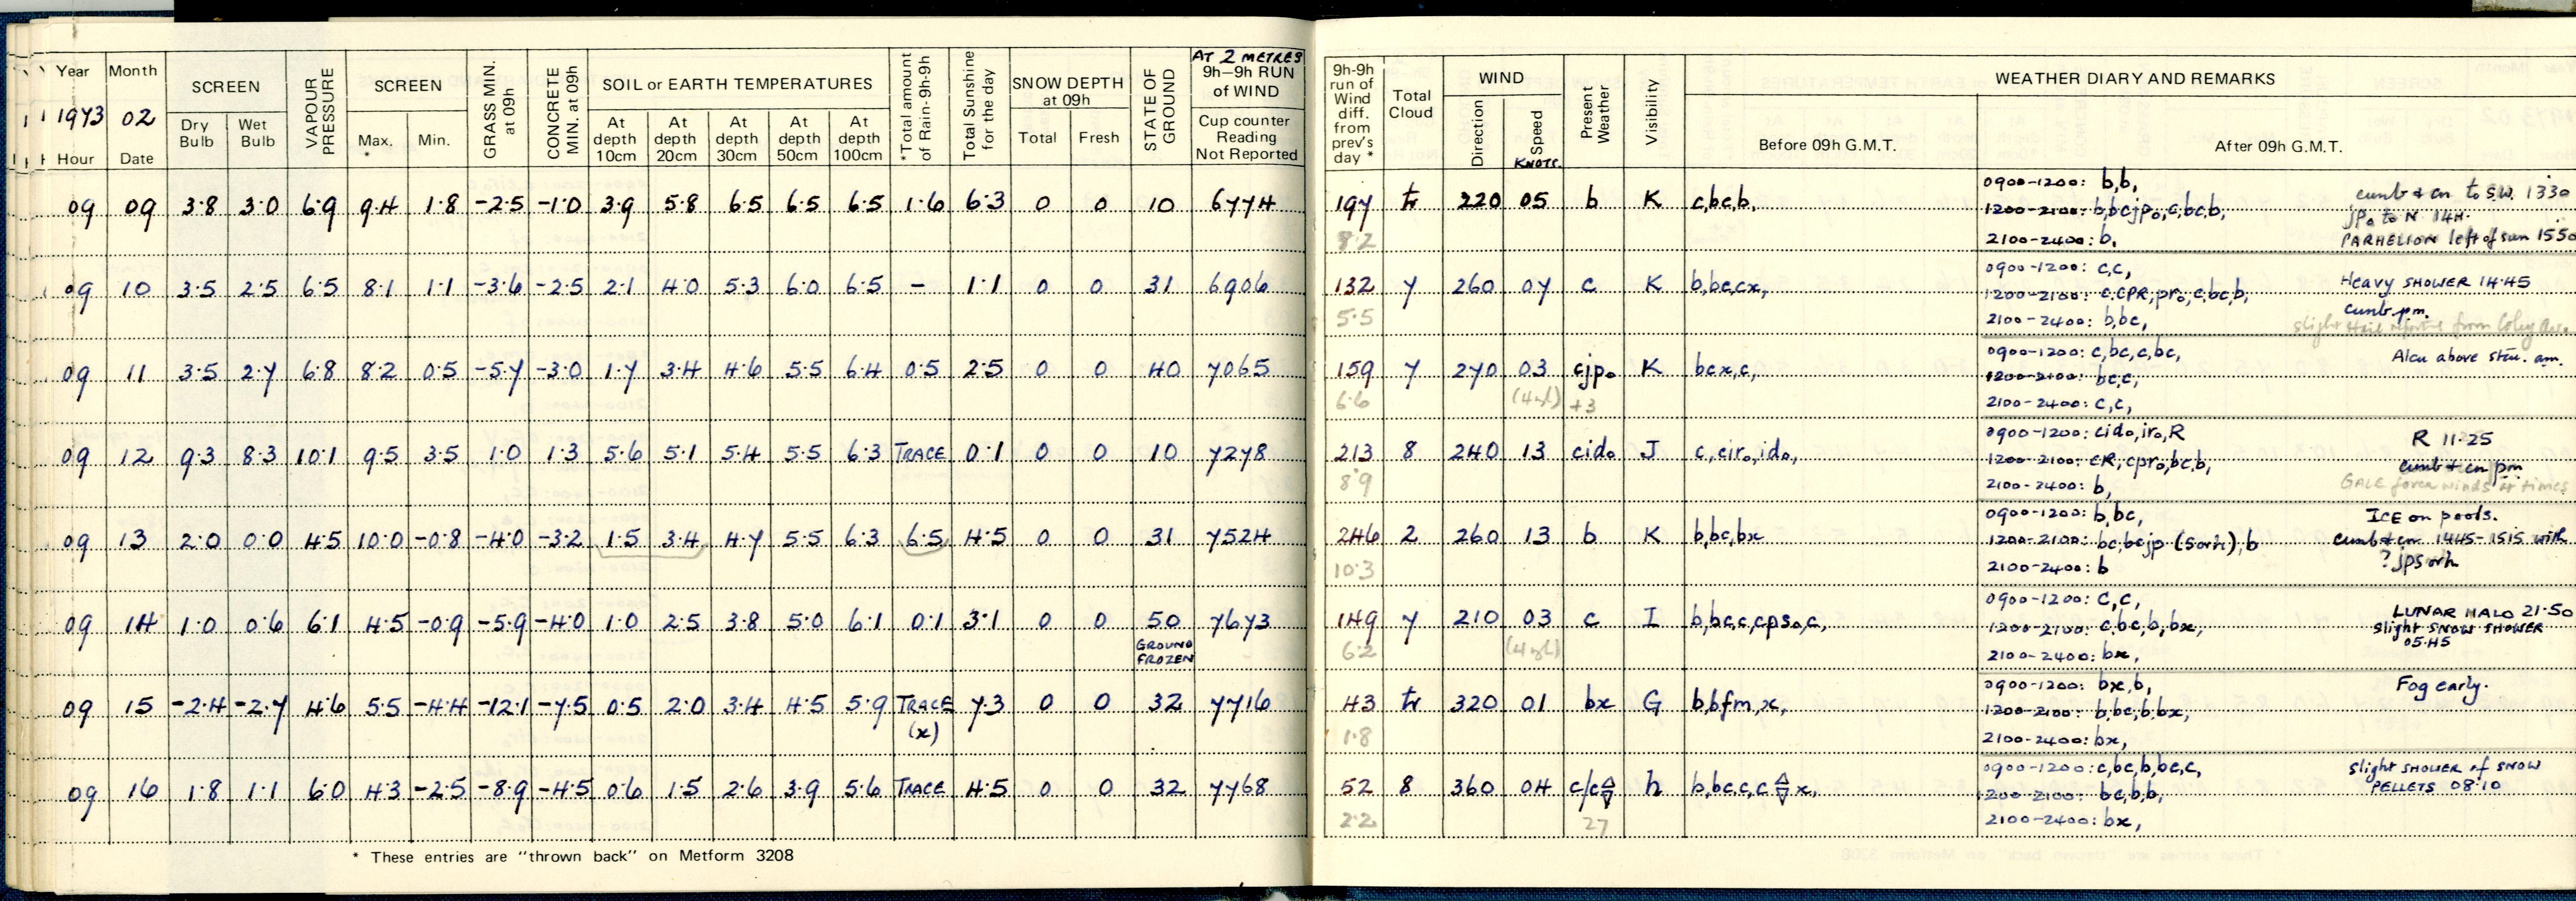 Year Month SCREEN VAPOUR PRESSURE SCREEN GRASS MIN. at 09h CONCRETE MIN. at 09h SOIL or EARTH TEMPERATURES *Total amount of Rain-9h-9h Total Sunshine for the day SNOW DEPTH at 09h STATE OF GROUND AT 2 METRES 9h–9h RUN of WIND
1973 02 Dry Bulb Wet Bulb Max. * Min. At depth 10cm At depth 20cm At depth 30cm At depth 50cm At depth 100cm Total Fresh Cup counter Reading Not Reported
Hour Date
09 09 3.8 3.0 6.9 9.4 1.8 -2.5 -1.0 3.9 5.8 6.5 6.5 6.5 1.6 6.3 0 0 10 6774
09 10 3.5 2.5 6.5 8.1 1.1 -3.6 -2.5 2.1 4.0 5.3 6.0 6.5 – 1.1 0 0 31 6906
09 11 3.5 2.7 6.8 8.2 0.5 -5.7 -3.0 1.7 3.4 4.6 5.5 6.4 0.5 2.5 0 0 40 7065
09 12 9.3 8.3 10.1 9.5 3.5 1.0 1.3 5.6 5.1 5.4 5.5 6.3 TRACE 0.1 0 0 10 7278
09 13 2.0 0.0 4.5 10.0 -0.8 -4.0 -3.2 1.5 3.4 4.7 5.5 6.3 6.5 4.5 0 0 31 7524
09 14 1.0 0.6 6.1 4.5 -0.9 -5.9 -4.0 1.0 2.5 3.8 5.0 6.1 0.1 3.1 0 0 50 7673
GROUND
FROZEN
09 15 -2.4 -2.7 4.6 5.5 -4.4 -12.1 -7.5 0.5 2.0 3.4 4.5 5.9 TRACE 7.3 0 0 32 7716
(x)
09 16 1.8 1.1 6.0 4.3 -2.5 -8.9 -4.5 0.6 1.5 2.6 3.9 5.6 TRACE 4.5 0 0 32 7768
* These entries are "thrown back" on Metform 3208
9h-9h run of Wind diff. from prev's day * Total Cloud WIND Present Weather Visibility WEATHER DIARY AND REMARKS
Direction Speed KNOTS. Before 09h G.M.T. After 09h G.M.T.
197 tr 220 05 b K c,bc,b,
8.2
0900-1200: b,b,
1200-2100: b,bcjp₀,c,bc,b,
2100-2400: b,
cunb + cn to S.W. 1330
jp₀ to N 14H.
PARHELION left of sun 1550
132 7 260 07 c K b,bc,cx,
5.5
0900-1200: c,c,
1200-2100: c,cPR,pr₀,c,bc,b,
2100-2400: b,bc,
Heavy SHOWER 14.45
cunb p.m.
slight Hail reported from
159 7 270 03 cjp₀ K bcx,c,
6.6 +3
0900-1200: c,bc,c,bc,
1200-2100: bc,c,
2100-2400: c,c,
Alcu above stcu. am.
213 8 240 13 cid₀ J c,cir₀,id₀,
8.9
0900-1200: cid₀,ir₀,R
1200-2100: cR,cpr₀,bc,b,
2100-2400: b,
R 11.25
cunb + cn pm
GALE force winds at times
246 2 260 13 b K b,bc,bx
10.3
0900-1200: b,bc,
1200-2100: bc,bcjp (s or h),b
2100-2400: b
ICE on pools.
cunb + cn 1445-1515 with
? jps or h
149 7 210 03 c I b,bc,c,cps₀,c,
6.2
0900-1200: c,c,
1200-2100: c,bc,b,bx,
2100-2400: bx,
LUNAR HALO 21.50
slight SNOW SHOWER
05.45
43 tr 320 01 bx G b,bfm,x,
1.8
0900-1200: bx,b,
1200-2100: b,bc,b,bx,
2100-2400: bx,
Fog early.
52 8 360 04 c/c h b,bc,c,c x,
2.2 27
0900-1200: c,bc,b,bc,c,
1200-2100: bc,b,b,
2100-2400: bx,
slight SHOWER of SNOW
PELLETS 08.10